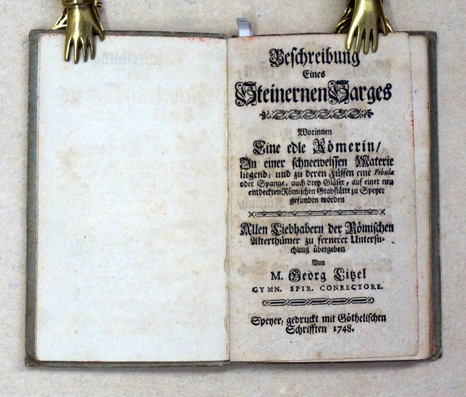 Beschreibung
Eines
Steinernen Sarges
Worinnen
Eine edle Römerin/
In einer schneeweissen Materie
liegend, und zu deren Füssen eine Fibula
oder Spange, auch drey Gläser, auf einer neu
entdeckten Römischen Grabstätte zu Speyer
gefunden worden
Allen Liebhabern der Römischen
Alterthümer zu fernerer Untersu-
chung übergeben
Von
M. Georg Litzel
GYMN. SPIR. CONRECTORE.
Speyer, gedruckt mit Göthelischen
Schrifften 1748.